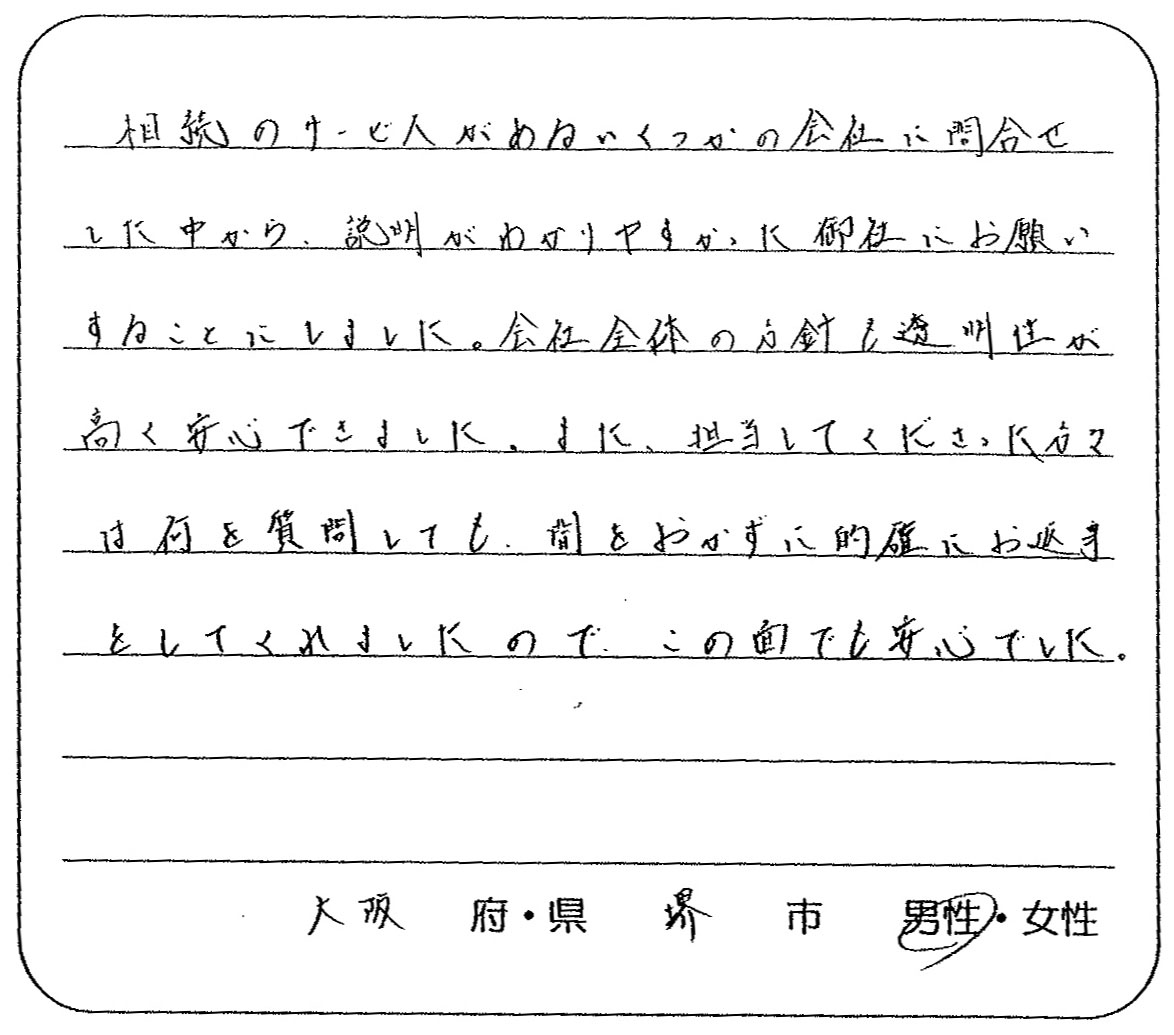 相続のサービスがあるいくつかの会社に問合せ
した中から、説明がわかりやすかった御社にお願い
することにしました。会社全体の方針も透明性が
高く安心できました。また、担当してくださった方々
は何を質問しても、間をおかずに的確にお返事
をしてくれましたので、この面でも安心でした。
大阪 府・県 堺 市 男性・女性